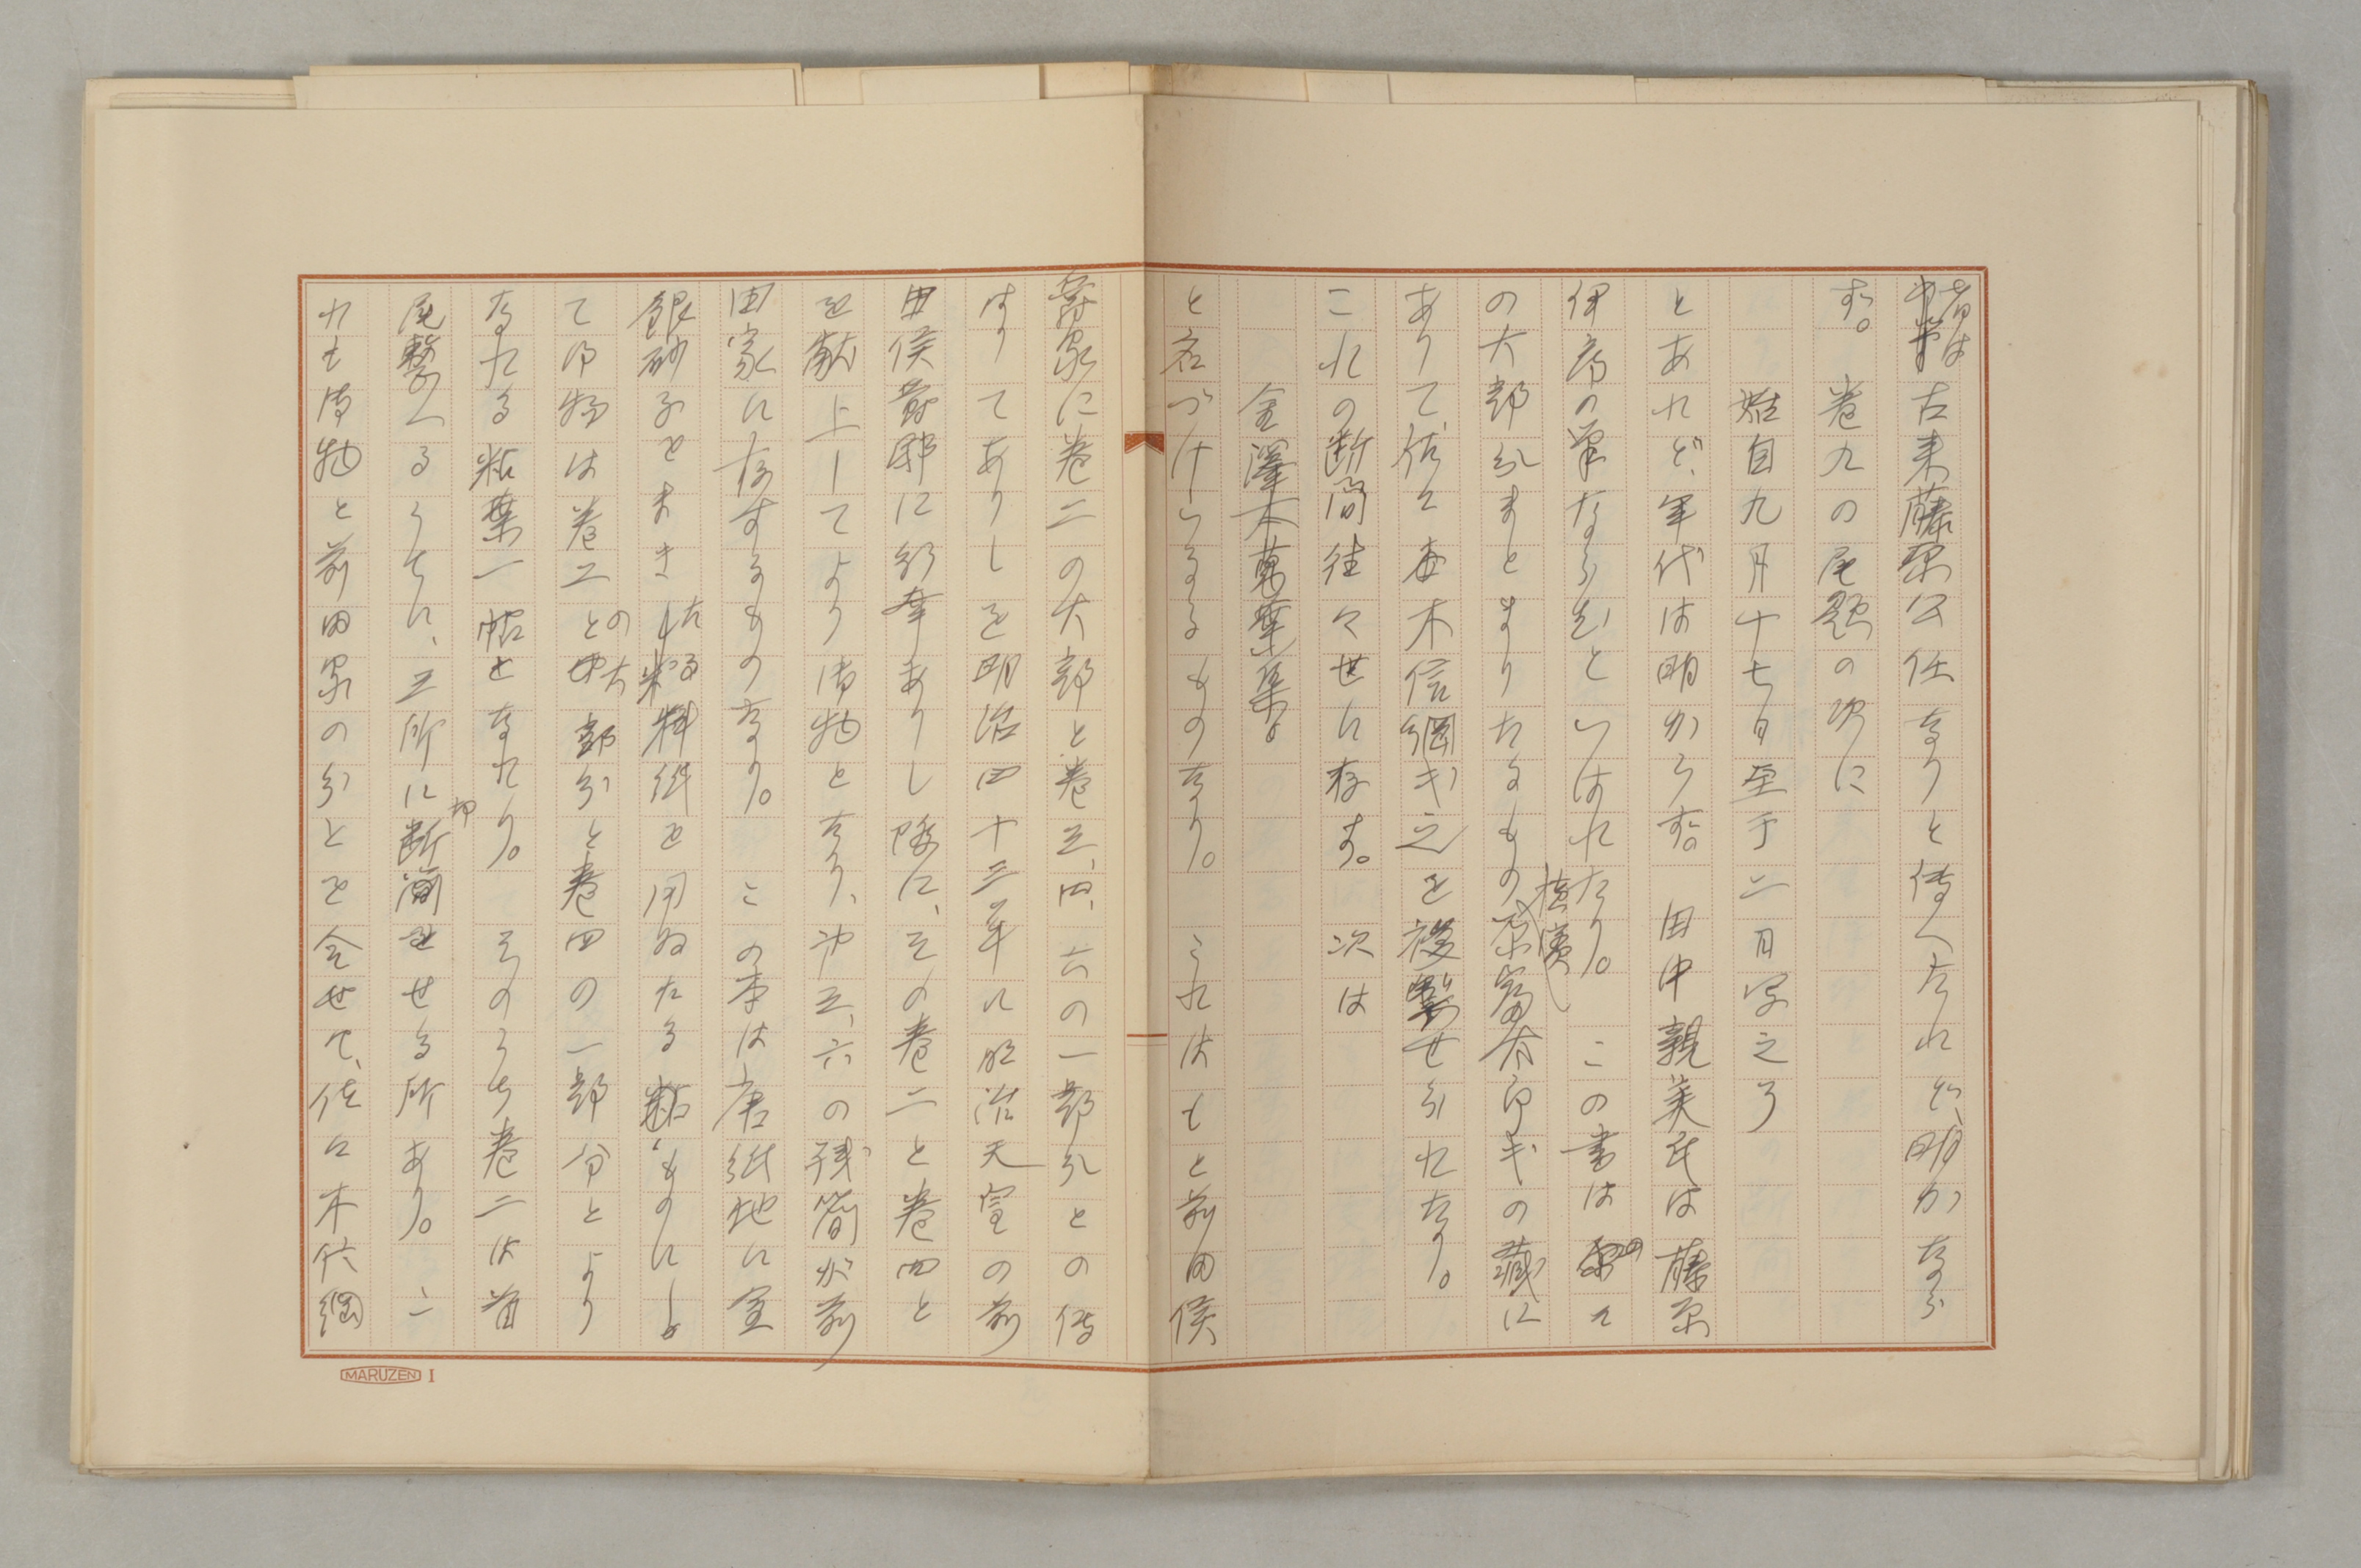 者は古来藤原公任なりと傳へたれど、明かなら
ず。巻九の尾題の次に
始自九月十七日至于二月写之了
とあれど、年代は明かならず。田中親美氏は藤原
伊房の筆ならむといはれたり。この書はの
の大部分まとまりたるもの横濱原富太郎氏の蔵に
ありて、佐々木信綱氏之を複製せられたり。
これの断簡往々世に存す。次は
金澤本萬葉集
と名づけらるるもの なり。これはもと前田侯
爵家に巻二の大部と巻三、四、六の一部分との傳
はりてありしを明治四十三年に明治天皇の前
田侯爵邸に行幸ありし際に、その巻二と巻四と
を献上してより御物となり、巻三、六の残簡が前
田家に存するものなり。この本は唐紙地に金
銀砂子をまきたる料紙を用ゐたる粘ものにし
て御物は巻二の大部分と巻四の一部分とより
なれる粘葉一帖となれり。そのうち巻二は首
尾整へるうちに、三所に断簡せる所あり。こ
れも御物と前田家の分とを合せて、佐々木信綱
MARUZEN I